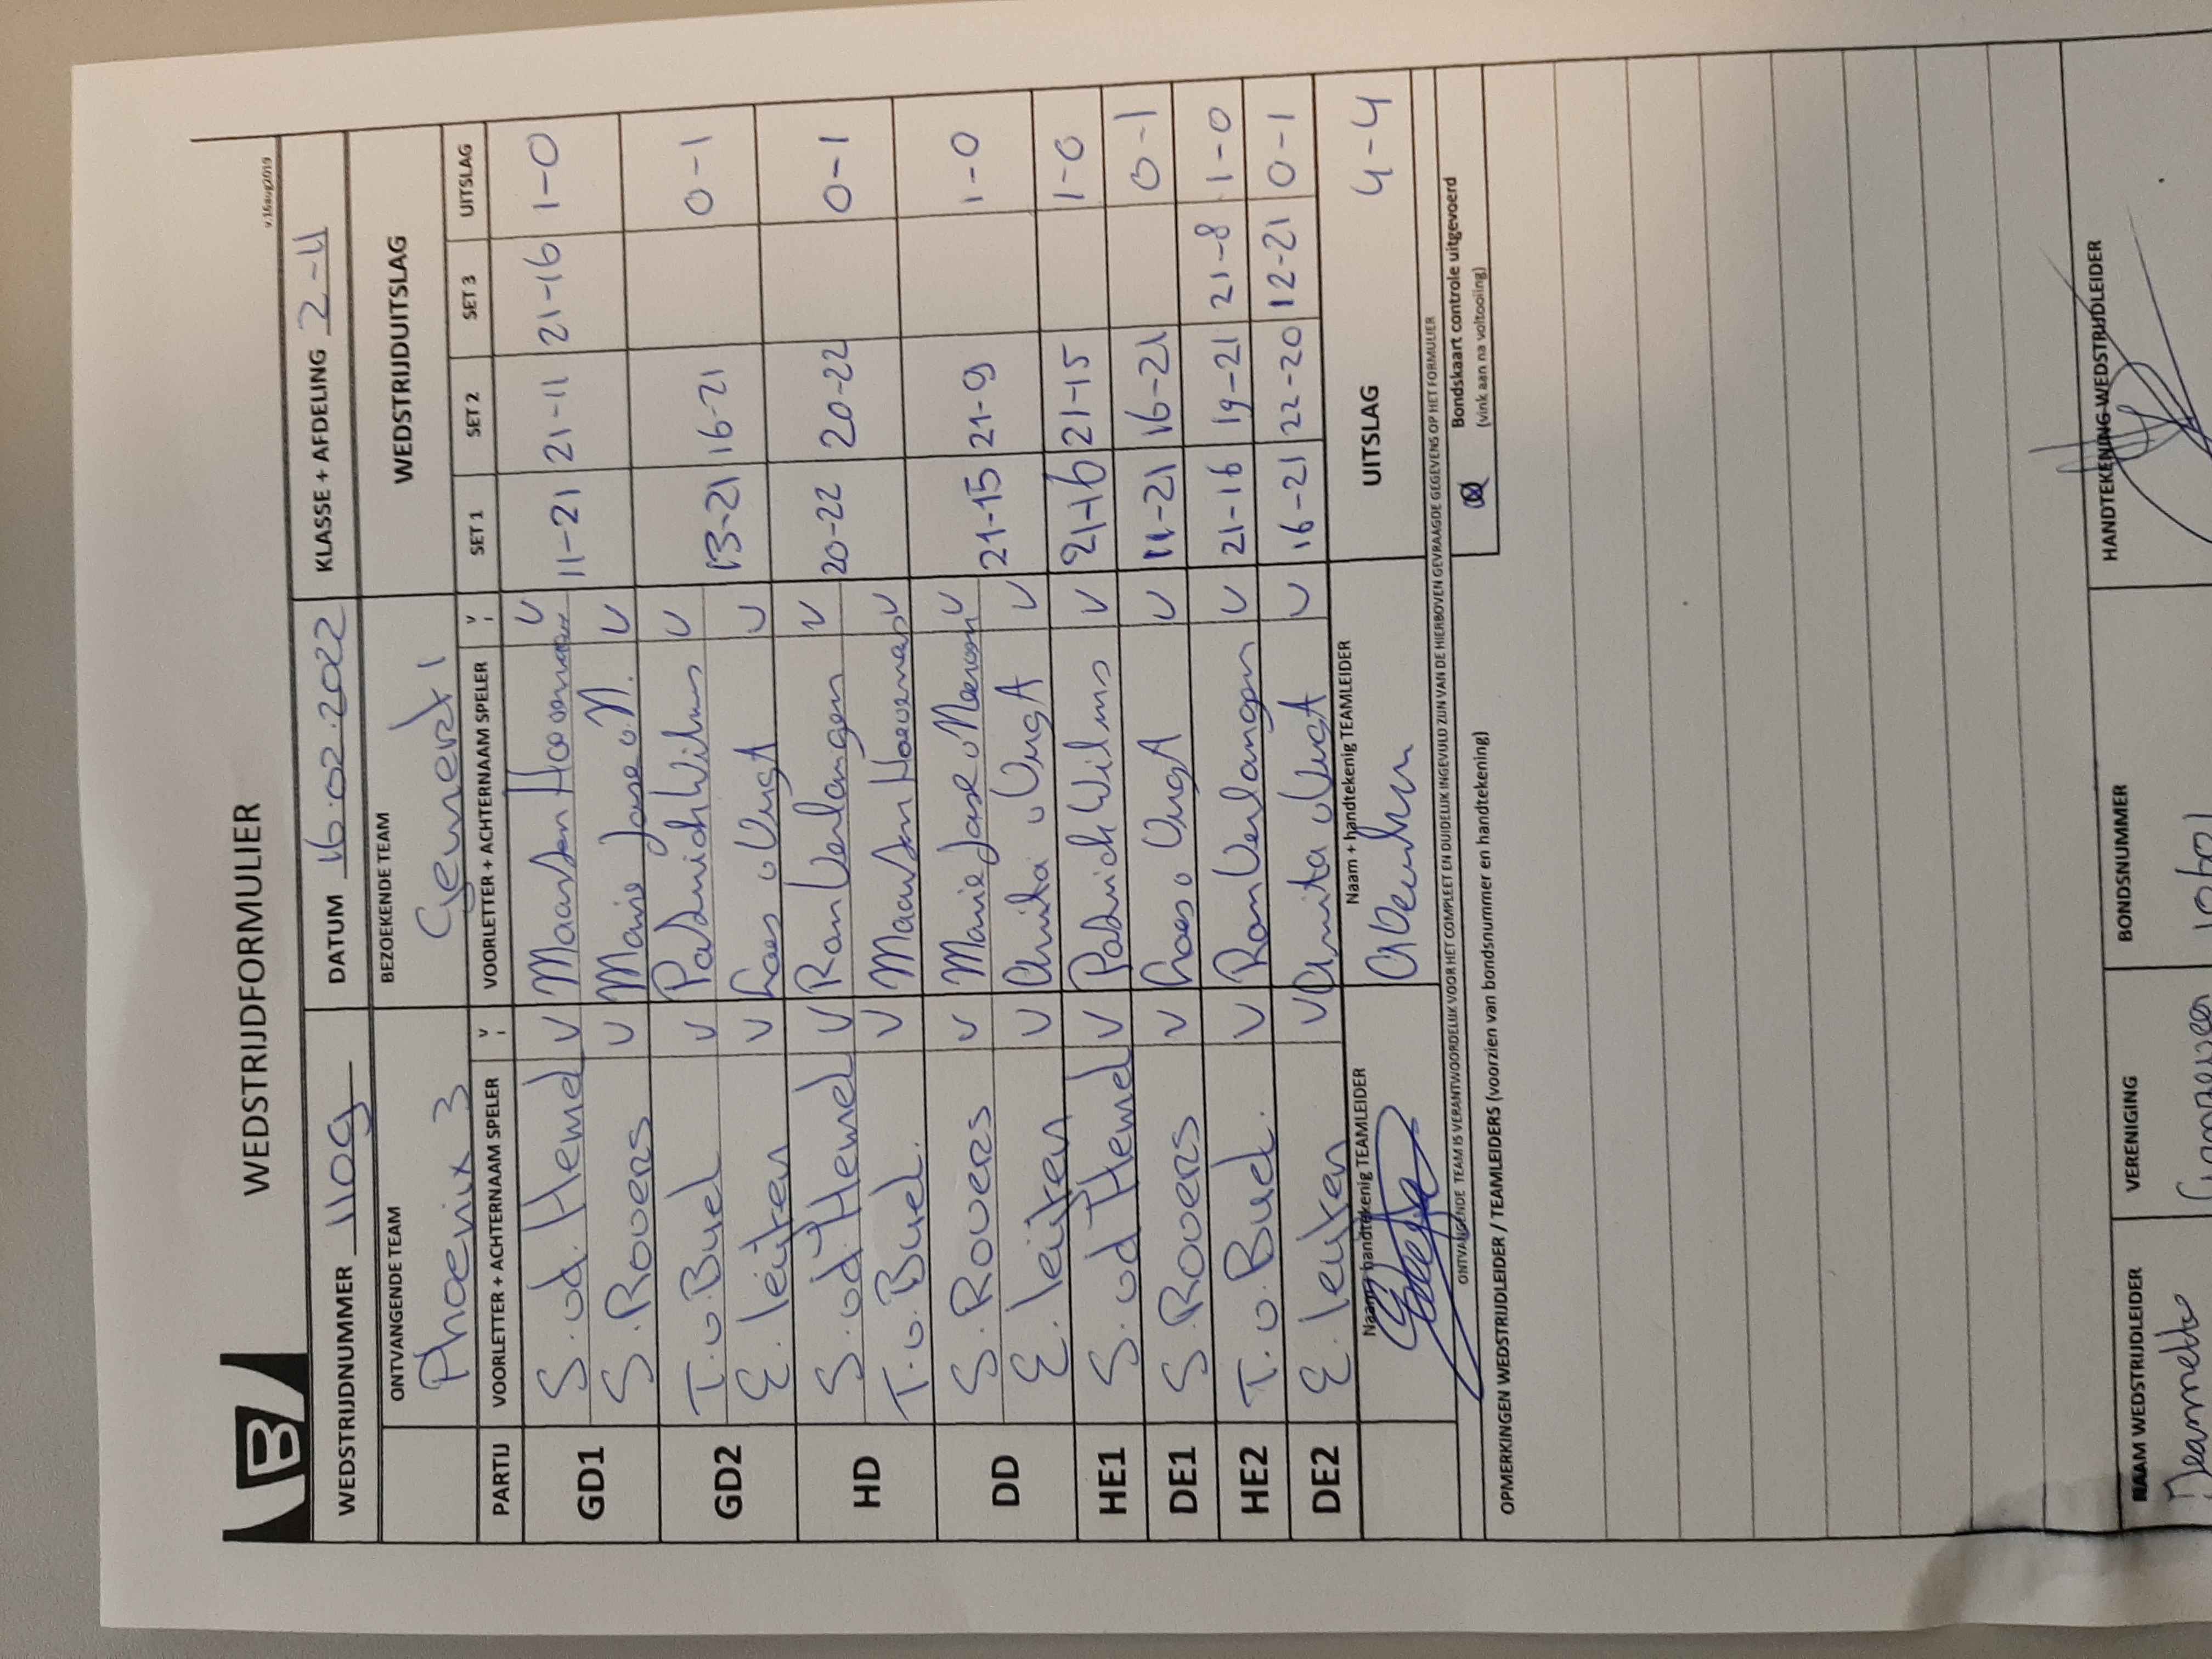 WEDSTRIJDFORMULIER
v.16aug2019
B
WEDSTRIJDNUMMER 1109 DATUM 16.02.2022 KLASSE + AFDELING 2-4
ONTVANGENDE TEAM BEZOEKENDE TEAM WEDSTRIJDUITSLAG
Phoenix 3 Gemert 1
PARTIJ VOORLETTER + ACHTERNAAM SPELER V VOORLETTER + ACHTERNAAM SPELER V SET 1 SET 2 SET 3 UITSLAG
GD1 S. vd. Hemel V Maarten V 11-21 21-11 21-16 1-0
S. Rovers V Marie José v. M. V
GD2 T. v. Buel V Patrick Wilms V 13-21 16-21 0-1
E. leijten V Loes v Vugt V
HD S. vd Hemel V Ron Verlangen V 20-22 20-22 0-1
T. v. Buel. V Maarten V
DD S. Rovers V Marie José V 21-15 21-9 1-0
E. leijten V Anita v Vugt V
HE1 S. vd Hemel V Patrick Wilms V 21-16 21-15 1-0
DE1 S. Rovers V Loes v Vugt V 11-21 16-21 0-1
HE2 T. v. Buel. V Ron Verlangen V 21-16 19-21 21-8 1-0
DE2 E. leijten V Anita v Vugt V 16-21 22-20 12-21 0-1
Naam + handtekenig TEAMLEIDER Naam + handtekenig TEAMLEIDER UITSLAG 4-4
ONTVANGENDE TEAM IS VERANTWOORDELIJK VOOR HET COMPLEET EN DUIDELIJK INGEVULD ZIJN VAN DE HIERBOVEN GEVRAAGDE GEGEVENS OP HET FORMULIER
Bondskaart controle uitgevoerd
(vink aan na voltooiing)
OPMERKINGEN WEDSTRIJDLEIDER / TEAMLEIDERS (voorzien van bondsnummer en handtekening)
NAAM WEDSTRIJDLEIDER VERENIGING BONDSNUMMER HANDTEKENING WEDSTRIJDLEIDER